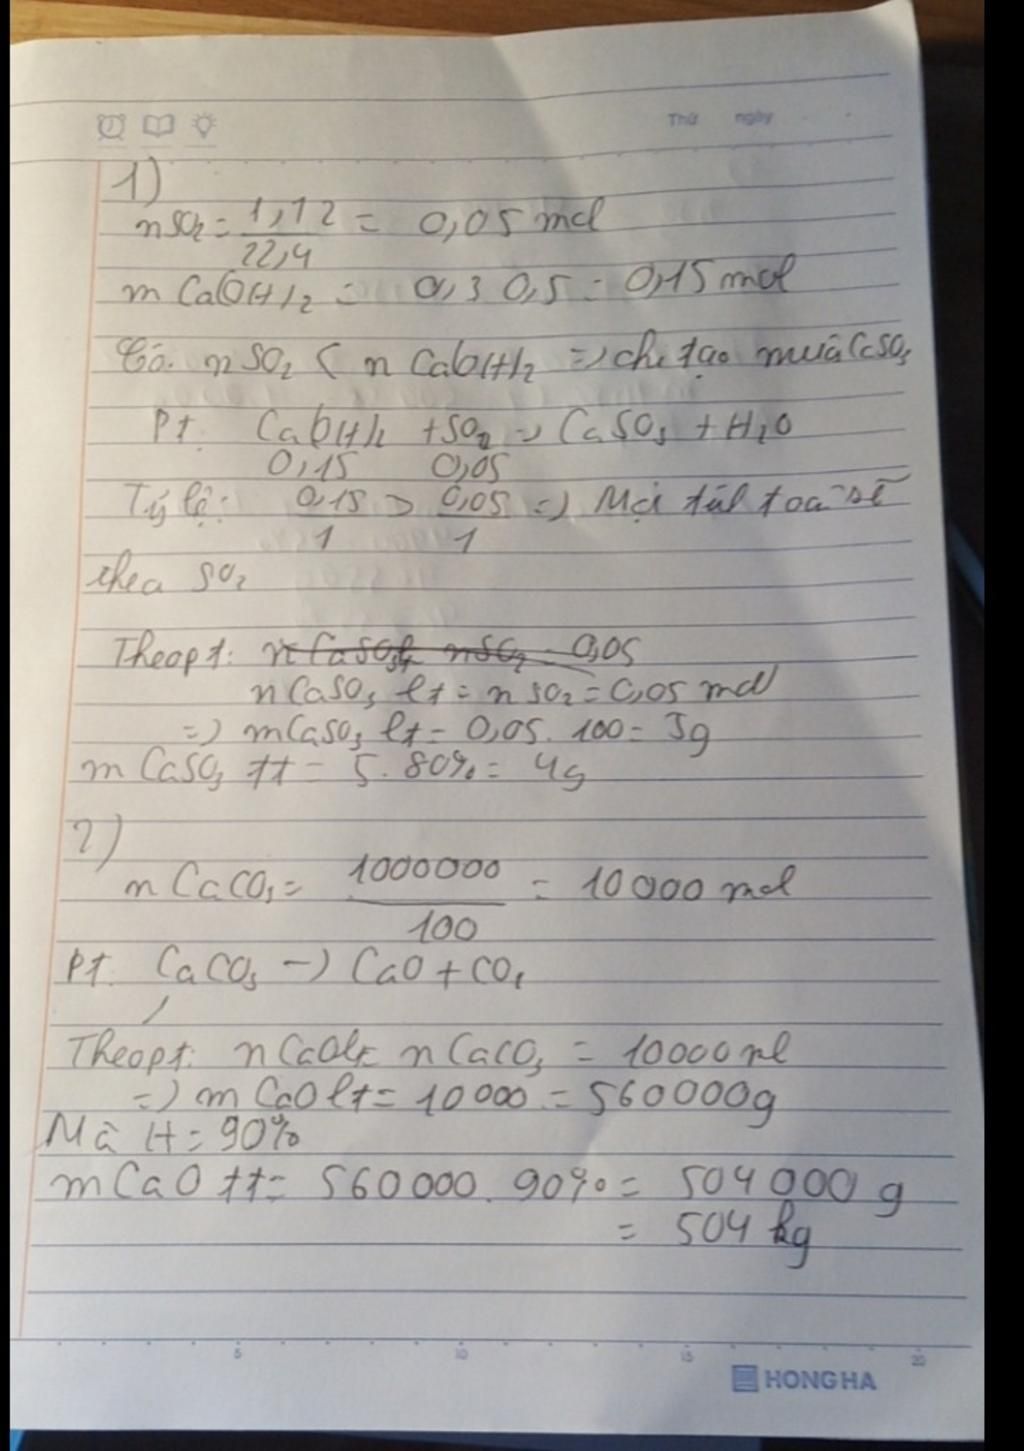 Thứ ngày
1)
nSO2 = 1,12 / 22,4 = 0,05 mol
m Ca(OH)2 = 0,3 0,5 = 0,15 mol
Có. nSO2 < n Ca(OH)2 => chỉ tạo muối CaSO3
Pt. Ca(OH)2 + SO2 -> CaSO3 + H2O
0,15 0,05
Tỷ lệ: 0,15 / 1 > 0,05 / 1 => Mọi tính toán sẽ
theo SO2
Theo pt: nCaSO3 lt nSO2 = 0,05
nCaSO3 lt = nSO2 = 0,05 mol
=> mCaSO3 lt = 0,05. 100 = 5g
m CaSO3 tt = 5.80% = 4g
2)
n CaCO3 = 1000000 / 100 = 10000 mol
Pt. CaCO3 -> CaO + CO2
Theo pt: nCaO lt = nCaCO3 = 10000 mol
=> m CaO lt = 10000 = 560000g
Mà H = 90%
mCaO tt = 560000. 90% = 504000 g
= 504 kg
5 10 15 20
HONG HA